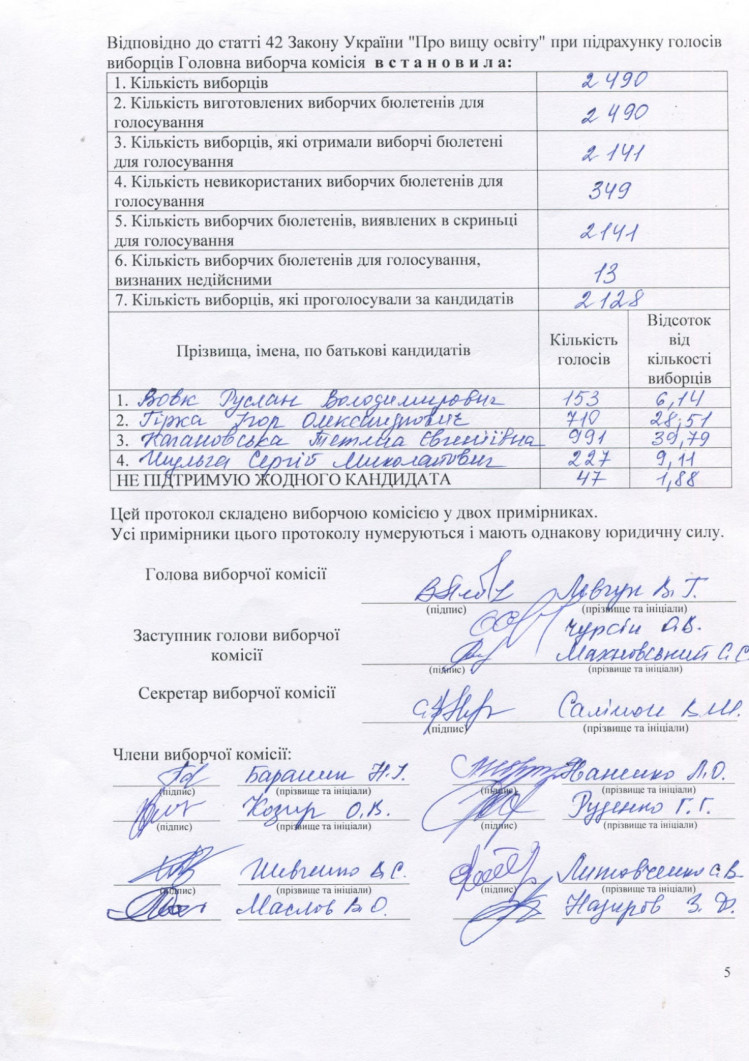 Відповідно до статті 42 Закону України "Про вищу освіту" при підрахунку голосів
виборців Головна виборча комісія в с т а н о в и л а:
1. Кількість виборців 2 490
2. Кількість виготовлених виборчих бюлетенів для
голосування 2 490
3. Кількість виборців, які отримали виборчі бюлетені
для голосування 2 141
4. Кількість невикористаних виборчих бюлетенів для
голосування 349
5. Кількість виборчих бюлетенів, виявлених в скриньці
для голосування 2141
6. Кількість виборчих бюлетенів для голосування,
визнаних недійсними 13
7. Кількість виборців, які проголосували за кандидатів 2128
Прізвища, імена, по батькові кандидатів
Кількість
голосів
Відсоток
від
кількості
виборців
1. Вовк Руслан Володимирович 153 6,14
2. Гіржа Ігор Олександрович 710 28,51
3. Кагановська Тетяна Євгеніївна 991 39,79
4. Шульга Сергій Миколайович 227 9,11
НЕ ПІДТРИМУЮ ЖОДНОГО КАНДИДАТА 47 1,88
Цей протокол складено виборчою комісією у двох примірниках.
Усі примірники цього протоколу нумеруються і мають однакову юридичну силу.
Голова виборчої комісії В. Г.
(підпис) (прізвище та ініціали)
Чурсін О.В.
Заступник голови виборчої
комісії Махновський С.С.
(підпис) (прізвище та ініціали)
Секретар виборчої комісії В.М.
(підпис) (прізвище та ініціали)
Члени виборчої комісії:
Н.І. Іваненко Л.О.
(підпис) (прізвище та ініціали) (підпис) (прізвище та ініціали)
Козир О.В. Руденко Г.Г.
(підпис) (прізвище та ініціали) (підпис) (прізвище та ініціали)
Шевченко В.С. Литовченко С.В.
(підпис) (прізвище та ініціали) (підпис) (прізвище та ініціали)
Маслов В.О. Назиров З.Ф.
5